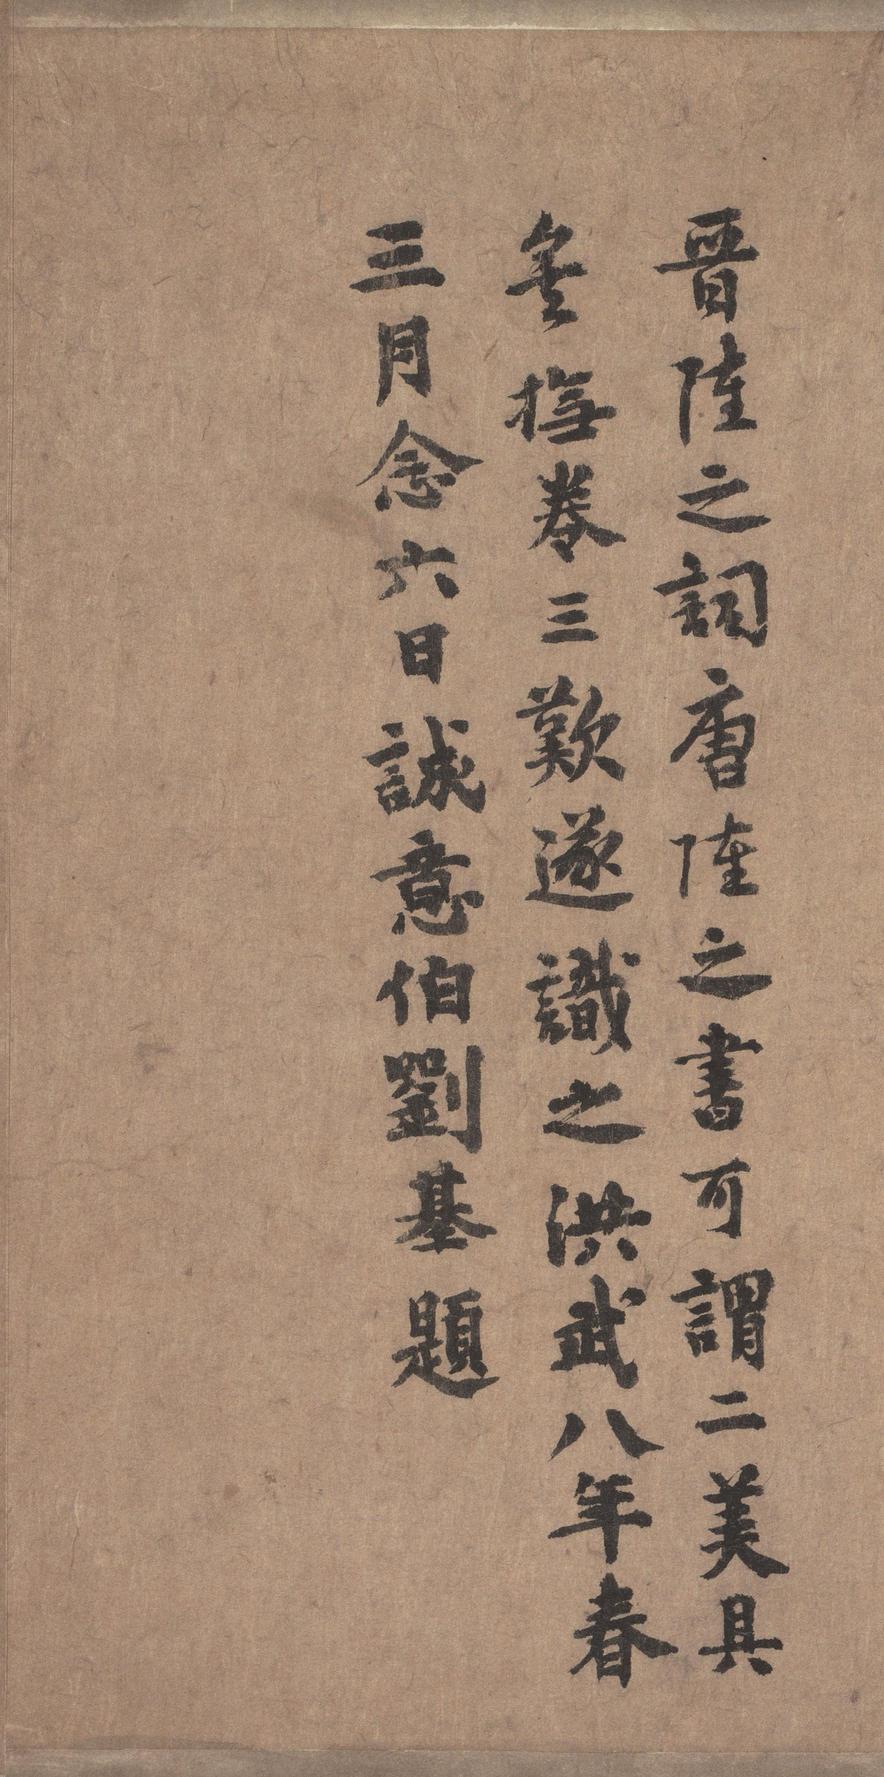 晉陸之詞唐陸之書可謂二美具
矣撫卷三歎遂識之洪武八年春
三月念六日誠意伯劉基題